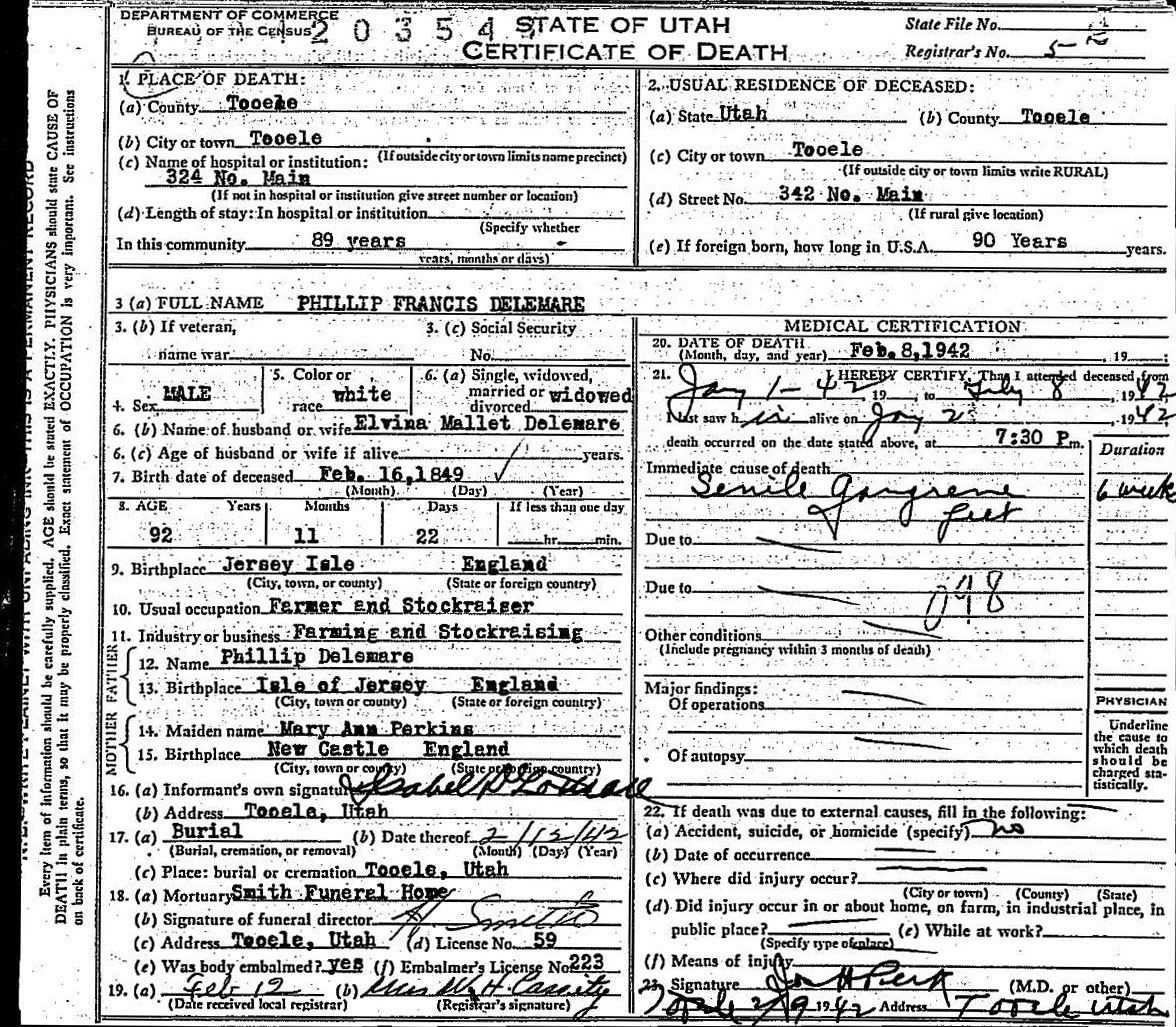 DEPARTMENT OF COMMERCE
BUREAU OF THE CENSUS
20354
STATE OF UTAH
CERTIFICATE OF DEATH
State File No.
Registrar's No. 5
1. PLACE OF DEATH:
(a) County Tooele
(b) City or town Tooele
(If outside city or town limits name precinct)
(c) Name of hospital or institution:
324 No. Main
(If not in hospital or institution give street number or location)
(d) Length of stay: In hospital or institution
(Specify whether
In this community 89 years
years, months or days)
2. USUAL RESIDENCE OF DECEASED:
(a) State Utah (b) County Tooele
(c) City or town Tooele
(If outside city or town limits write RURAL)
(d) Street No. 342 No. Main
(If rural give location)
(e) If foreign born, how long in U.S.A. 90 Years years.
3 (a) FULL NAME PHILLIP FRANCIS DELEMARE
3. (b) If veteran, 3. (c) Social Security
name war No.
4. Sex MALE 5. Color or race white 6. (a) Single, widowed, married or divorced widowed
6. (b) Name of husband or wife Elvina Mallet Delemare
6. (c) Age of husband or wife if alive years.
7. Birth date of deceased Feb. 16,1849
(Month) (Day) (Year)
8. AGE Years Months Days If less than one day
92 11 22 hr. min.
9. Birthplace Jersey Isle England
(City, town, or county) (State or foreign country)
10. Usual occupation Farmer and Stockraiser
11. Industry or business Farming and Stockraising
FATHER
12. Name Phillip Delemare
13. Birthplace Isle of Jersey England
(City, town or county) (State or foreign country)
MOTHER
14. Maiden name Mary Ann Perkins
15. Birthplace New Castle England
(City, town or county) (State or foreign country)
16. (a) Informant's own signature Isabel D
(b) Address Tooele, Utah
17. (a) Burial (b) Date thereof 2/12/42
(Burial, cremation, or removal) (Month) (Day) (Year)
(c) Place: burial or cremation Tooele, Utah
18. (a) Mortuary Smith Funeral Home
(b) Signature of funeral director Smith
(c) Address Tooele, Utah (d) License No. 59
(e) Was body embalmed? yes (f) Embalmer's License No 223
19. (a) Feb 12 (b) H. Cassity
(Date received local registrar) (Registrar's signature)
MEDICAL CERTIFICATION
20. DATE OF DEATH
(Month, day, and year) Feb. 8,1942 , 19
21. I HEREBY CERTIFY, That I attended deceased from
Jay 1-42 , 19 , to Feby 8 , 1942
I last saw him alive on Jay 2 , 1942
death occurred on the date stated above, at 7:30 P m.
Duration
Immediate cause of death
Senile Gangrene 6 week
feet
Due to
Due to
098
Other conditions
(Include pregnancy within 3 months of death)
Major findings:
Of operations
Of autopsy
PHYSICIAN
Underline
the cause to
which death
should be
charged sta-
tistically.
22. If death was due to external causes, fill in the following:
(a) Accident, suicide, or homicide (specify) no
(b) Date of occurrence
(c) Where did injury occur?
(City or town) (County) (State)
(d) Did injury occur in or about home, on farm, in industrial place, in
public place? (e) While at work?
(Specify type of place)
(f) Means of injury
23. Signature Jos H Peck (M.D. or other)
Tooele 2/9 1942 Address Tooele Utah
Every item of information should be carefully supplied. AGE should be stated EXACTLY. PHYSICIANS should state CAUSE OF
DEATH in plain terms, so that it may be properly classified. Exact statement of OCCUPATION is very important. See instructions
on back of certificate.